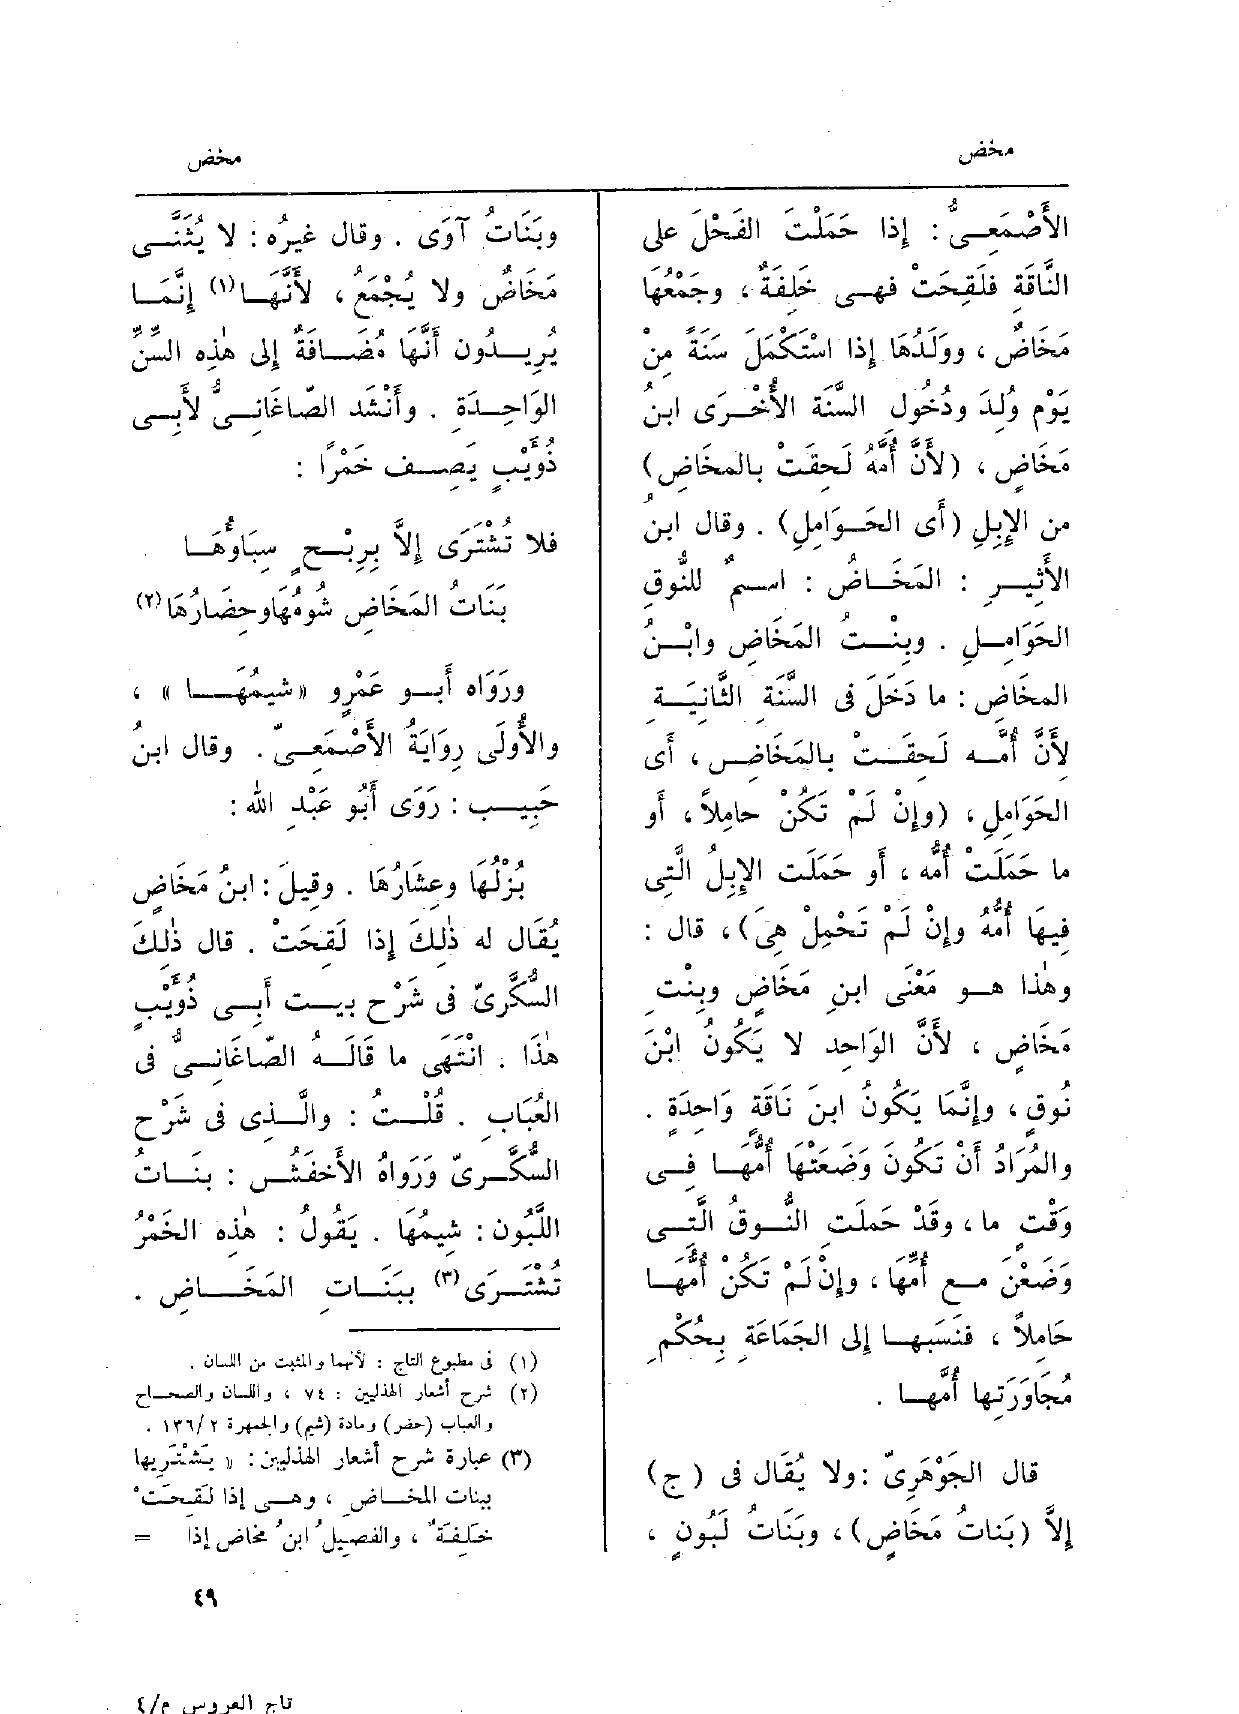 مخض
مخض
الأَصْمَعِىُّ : إذا حَمَلْتَ الفَحْلَ على
النَّاقَةِ فلَقِحَتْ فهى خَلِفَةٌ ، وجَمْعُها
مَخَاضٌ ، ووَلَدُهَا إذا اسْتَكْمَلَ سَنَةً مِنْ
يَوْمِ وُلِدَ ودُخُولِ السَّنَةِ الأُخْرَى ابنُ
مَخَاضٍ ، (لأَنَّ أُمَّهُ لَحِقَتْ بالمَخَاضِ)
من الإِبِلِ (أى الحَوَامِلِ) . وقال ابنُ
الأَثِيرِ : المَخَاضُ : اسمٌ للنُّوقِ
الحَوَامِلِ . وبِنْتُ المَخَاضِ وابْنُ
المخَاضِ : ما دَخَلَ فى السَّنَةِ الثَّانِيَةِ
لأَنَّ أُمَّه لَحِقَتْ بالمَخَاضِ ، أى
الحَوَامِلِ ، (وإِنْ لَمْ تَكُنْ حامِلاً ، أو
ما حَمَلَتْ أُمُّه ، أو حَمَلَت الإِبِلُ الَّتِى
فِيهَا أُمُّهُ وإِنْ لَمْ تَحْمِلْ هِىَ) ، قال :
وهٰذا هو مَعْنَى ابنِ مَخَاضٍ وبِنْتِ
مَخَاضٍ ، لأَنَّ الوَاحِد لا يَكُونُ ابْنَ
نُوقٍ ، وإِنَّمَا يَكُونُ ابنَ نَاقَةٍ وَاحِدَةٍ .
والمُرَادُ أَنْ تَكُونَ وَضَعَتْهَا أُمُّهَا فِى
وَقْتٍ ما ، وقَدْ حَمَلَتِ النُّوقُ الَّتِى
وَضَعْنَ مع أُمِّهَا ، وإِنْ لَمْ تَكُنْ أُمُّهَا
حَامِلاً ، فنَسَبهَا إِلى الجَمَاعَةِ بِحُكْمِ
مُجَاوَرَتِها أُمَّهَا .
قال الجَوْهَرِىّ : ولا يُقَال فى (ج)
إِلاَّ (بَنَاتُ مَخَاضٍ) ، وبَنَاتُ لَبُونٍ ،
وبَنَاتُ آوَى . وقال غيرُه : لا يُثَنَّى
مَخَاضٌ ولا يُجْمَعُ ، لأَنَّهَا(١) إِنَّمَا
يُرِيدُون أَنَّهَا مُضَافَةٌ إِلى هٰذِه السِّنِّ
الوَاحِدَةِ . وأَنْشَد الصّاغَانِىُّ لأَبِى
ذُؤَيْبٍ يَصِف خَمْرًا :
فلا تُشْتَرَى إِلاَّ بِرِبْحٍ سِبَاؤُهَا
بَنَاتُ المَخَاضِ شُومُهَا وحِضَارُهَا(٢)
ورَوَاه أَبو عَمْرٍو «شِيمُهَا» ،
والأُولَى رِوَايَةُ الأَصْمَعِىّ . وقال ابنُ
حَبِيب : رَوَى أَبُو عَبْدِ الله :
بُزْلُهَا وعِشَارُهَا . وقِيلَ : ابنُ مَخَاضٍ
يُقَال له ذٰلِكَ إِذا لَقِحَتْ . قال ذٰلِكَ
السُّكَّرِىّ فى شَرْحِ بيت أَبِى ذُؤَيْبٍ
هٰذَا . انْتَهَى ما قَالَهُ الصّاغَانِىُّ فى
العُبَاب . قُلْتُ : والَّذِى فى شَرْحِ
السُّكَّرِىّ ورَوَاهُ الأَخفَشُ : بنَاتُ
اللَّبُون : شِيمُهَا . يَقُولُ : هٰذِه الخَمْرُ
تُشْتَرَى(٣) ببَنَاتِ المَخَاضِ .
(١) فى مطبوع التاج : لأنهما والمثبت من اللسان .
(٢) شرح أشعار الهذليين : ٧٤ ، واللسان والصحاح
والعباب (حضر) ومادة (شيم) والجمهرة ٢/١٣٦ .
(٣) عبارة شرح أشعار الهذليين : « يَشْتَريها
ببنات المخاض ، وهى إذا لَقِحَتْ
خَلِفَةٌ ، والفصيلُ ابنُ مخاض إذا =
٤٩
تاج العروس م/٤